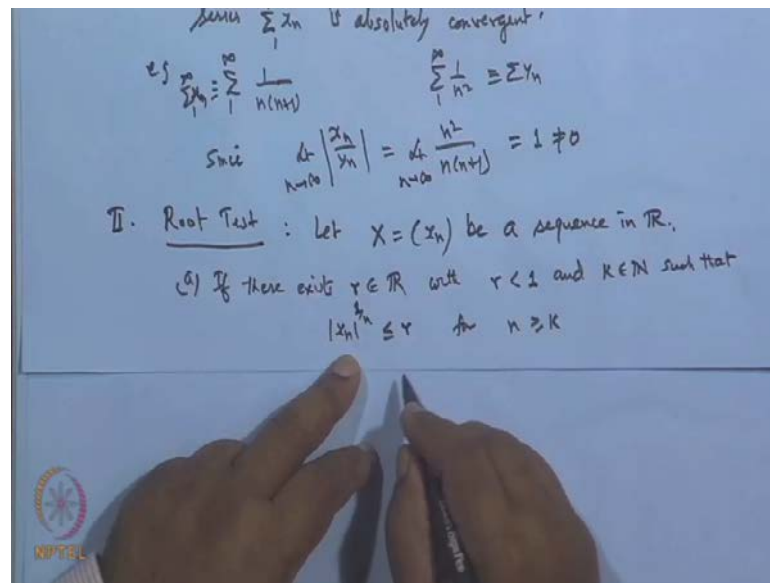 series ∑₁ xₙ is absolutely convergent.
eg ∑₁^∞ xₙ ≡ ∑₁^∞ 1/n(n+1) ∑₁^∞ 1/n² ≡ ∑ yₙ
Since lt n→∞ |xₙ/yₙ| = lt n→∞ n²/n(n+1) = 1 ≠ 0
II. Root Test : Let X = (xₙ) be a sequence in ℝ.
(a) If there exists r ∈ ℝ with r < 1 and K ∈ ℕ such that
|xₙ|^(1/n) ≤ r for n ≥ K
NPTEL